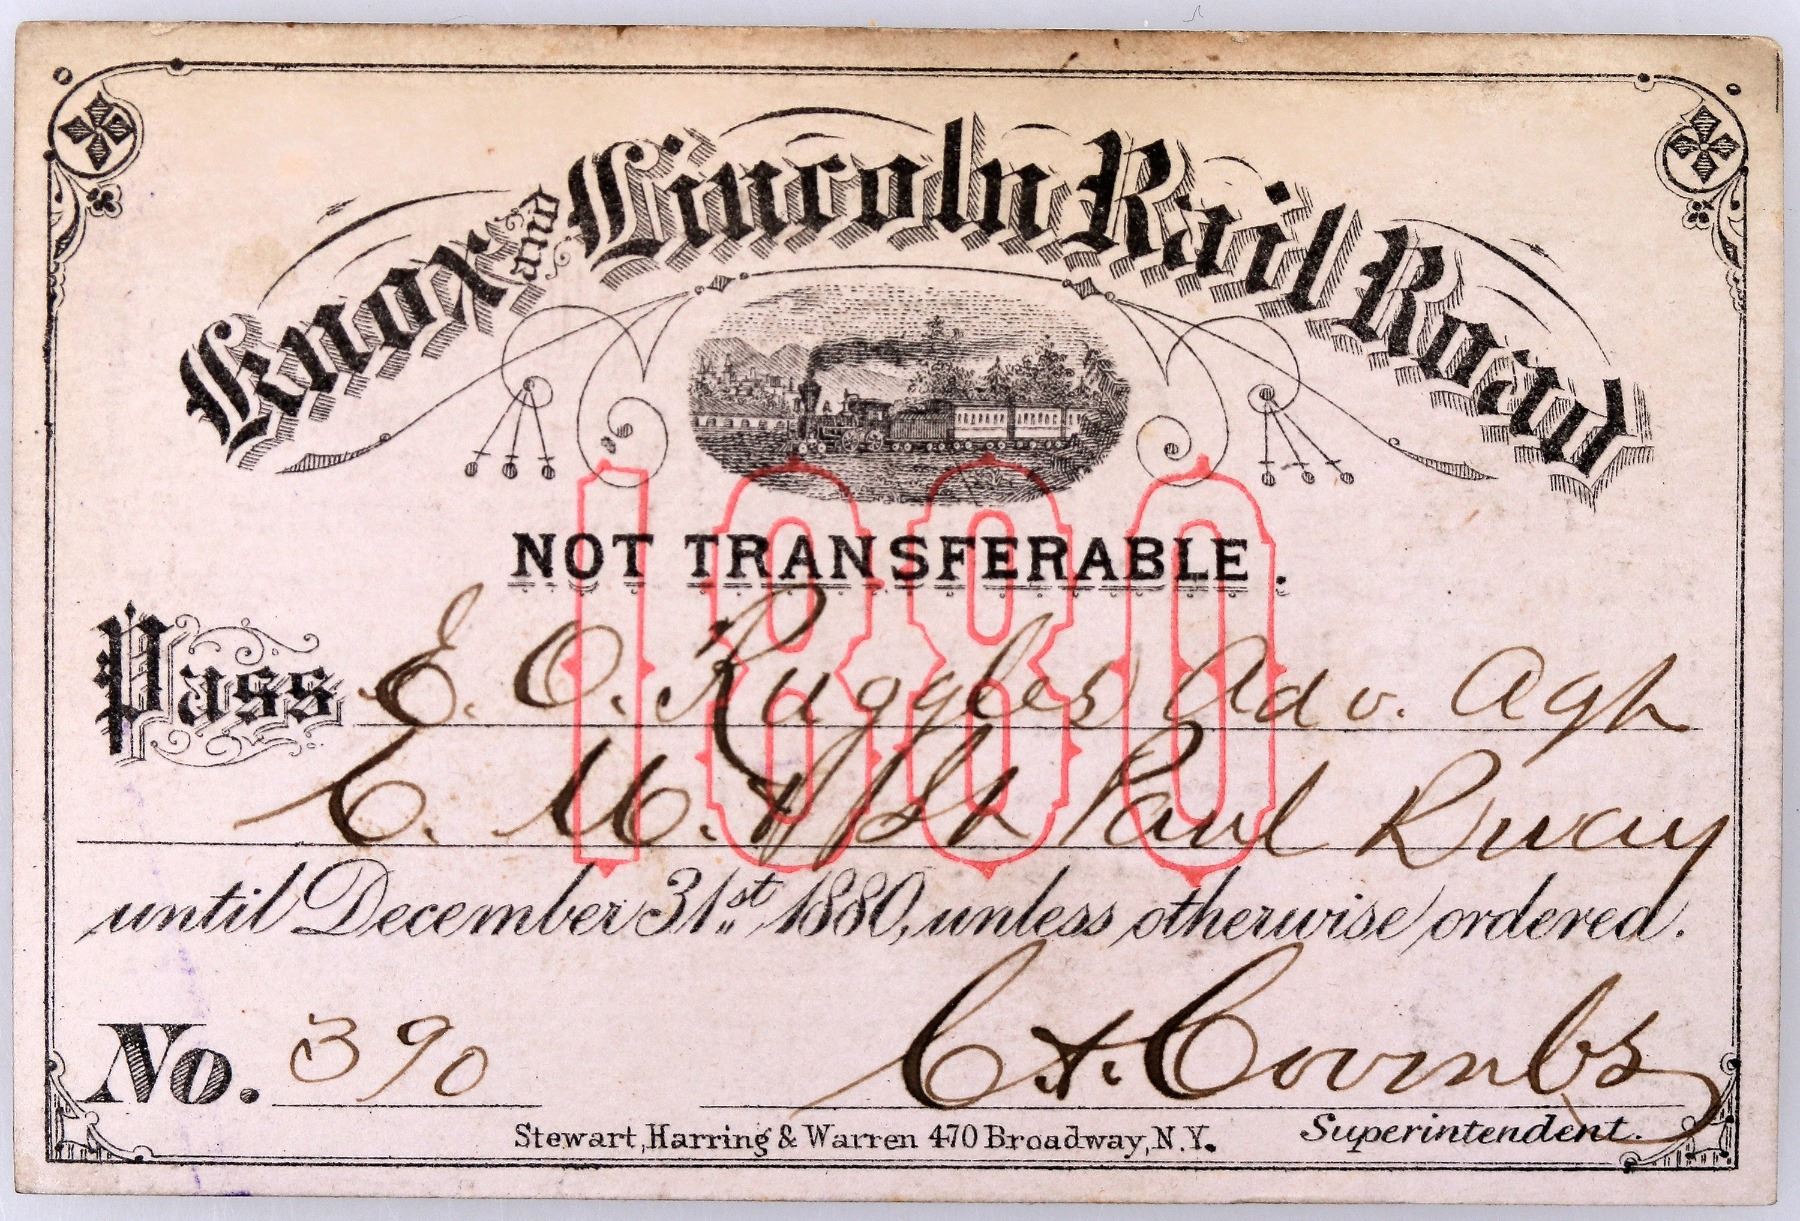 Knox and Lincoln Rail Road
1880
NOT TRANSFERABLE.
Pass E. O. Ruggles Adv. Agt
C. M. & St Paul Rway
until December 31st. 1880, unless otherwise ordered.
No. 390
C. A. Coombs
Stewart, Harring & Warren 470 Broadway, N.Y.
Superintendent.